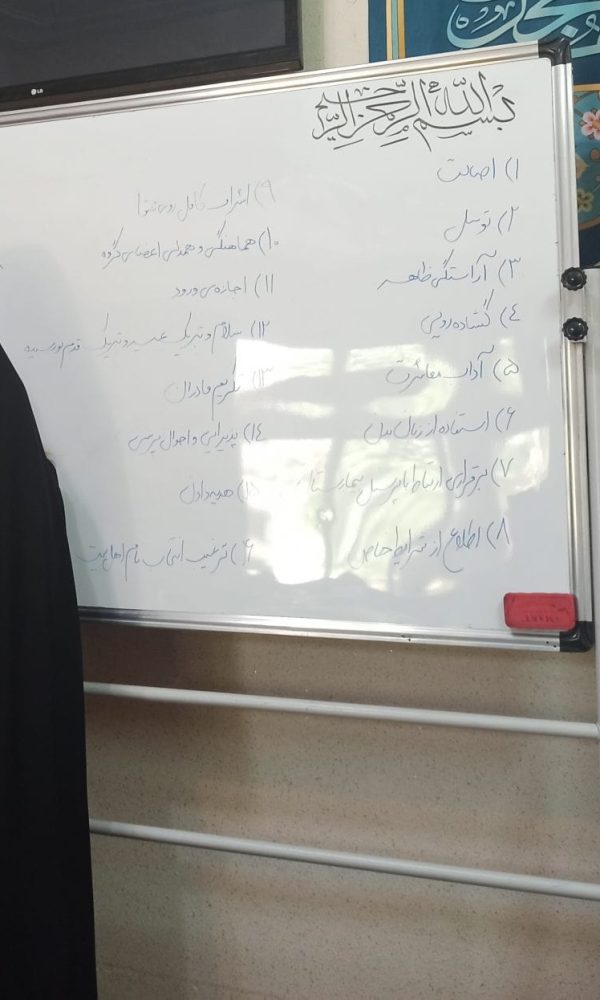 بسم الله الرحمن الرحیم
۱) اصالت
۲) توسل
۳) آراستگی ظاهر
۴) گشاده رویی
۵) آداب معاشرت
۶) استفاده از زبان بدن
۷) برقراری ارتباط با پرسنل بیمارستان
۸) اطلاع از شرایط خاص
۹) اشراف کامل روی محتوا
۱۰) هماهنگی و همدلی اعضای گروه
۱۱) اجازه‌ی ورود
۱۲) سلام و تبریک عید و تبریک قدم نورسیده
۱۳) تکریم مادران
۱۴) پذیرایی و احوال پرسی
۱۵) هدیه دادن
۱۶) ترغیب انتخاب نام اهل بیت
LG